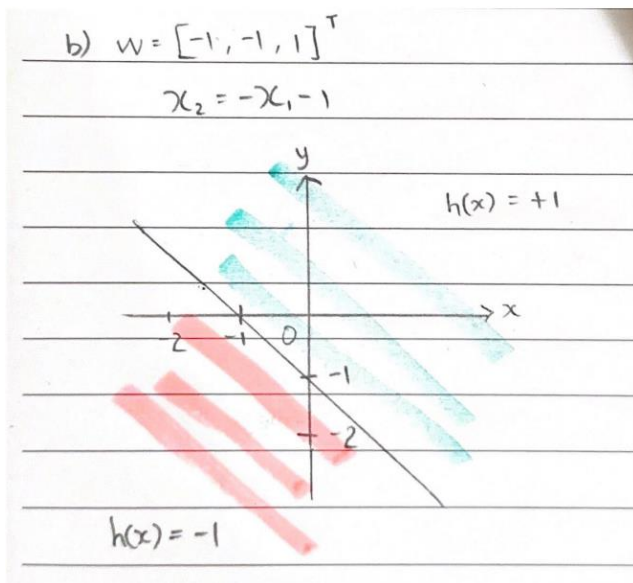 b) w = [-1, -1, 1]ᵀ
x₂ = -x₁ - 1
y
h(x) = +1
x
-2 -1 0
-1
-2
h(x) = -1